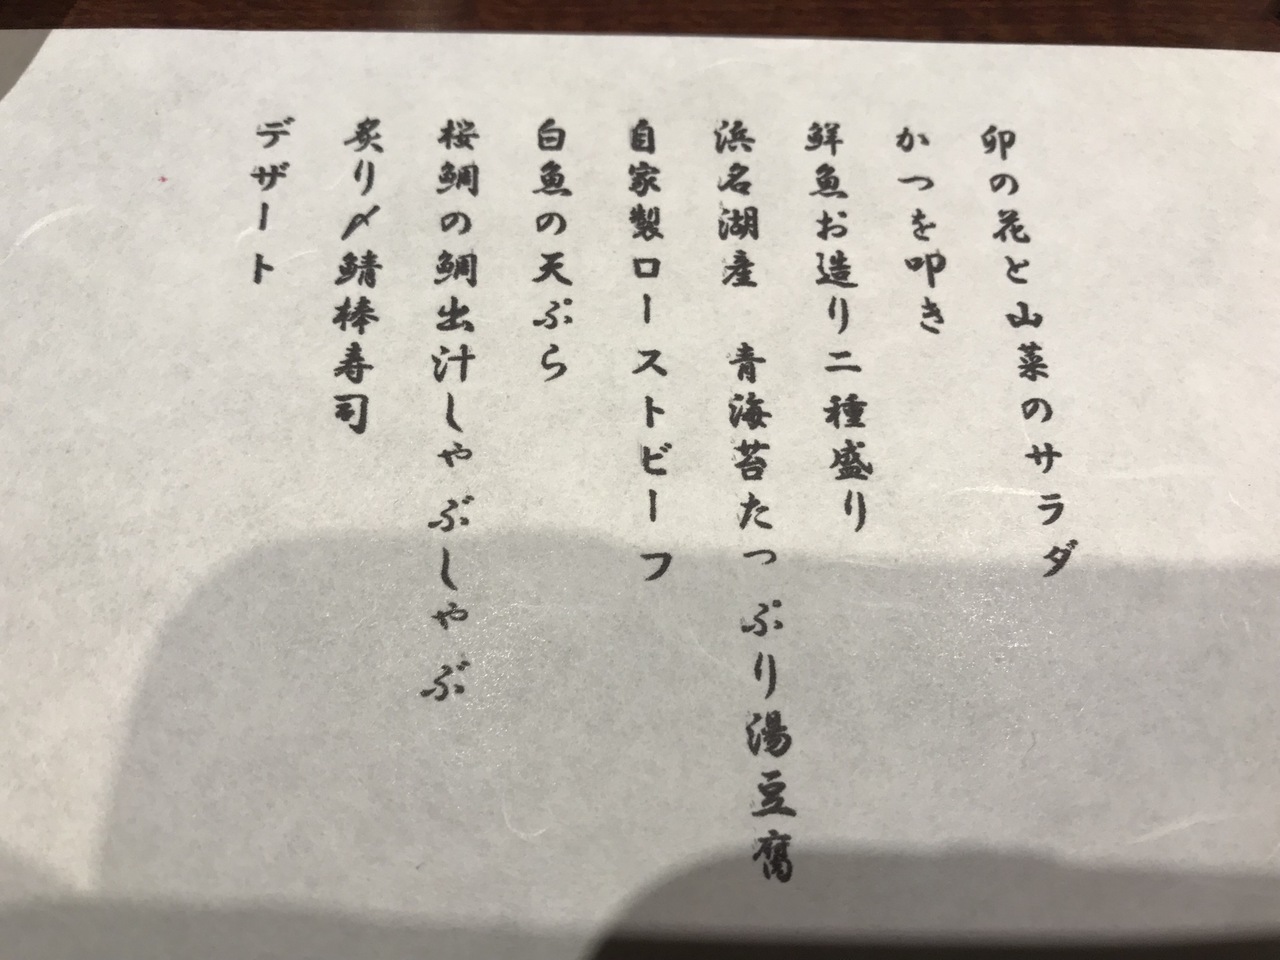 卯の花と山菜のサラダ
かつを叩き
鮮魚お造り二種盛り
浜名湖産　青海苔たっぷり湯豆腐
自家製ローストビーフ
白魚の天ぷら
桜鯛の鯛出汁しゃぶしゃぶ
炙り〆鯖棒寿司
デザート